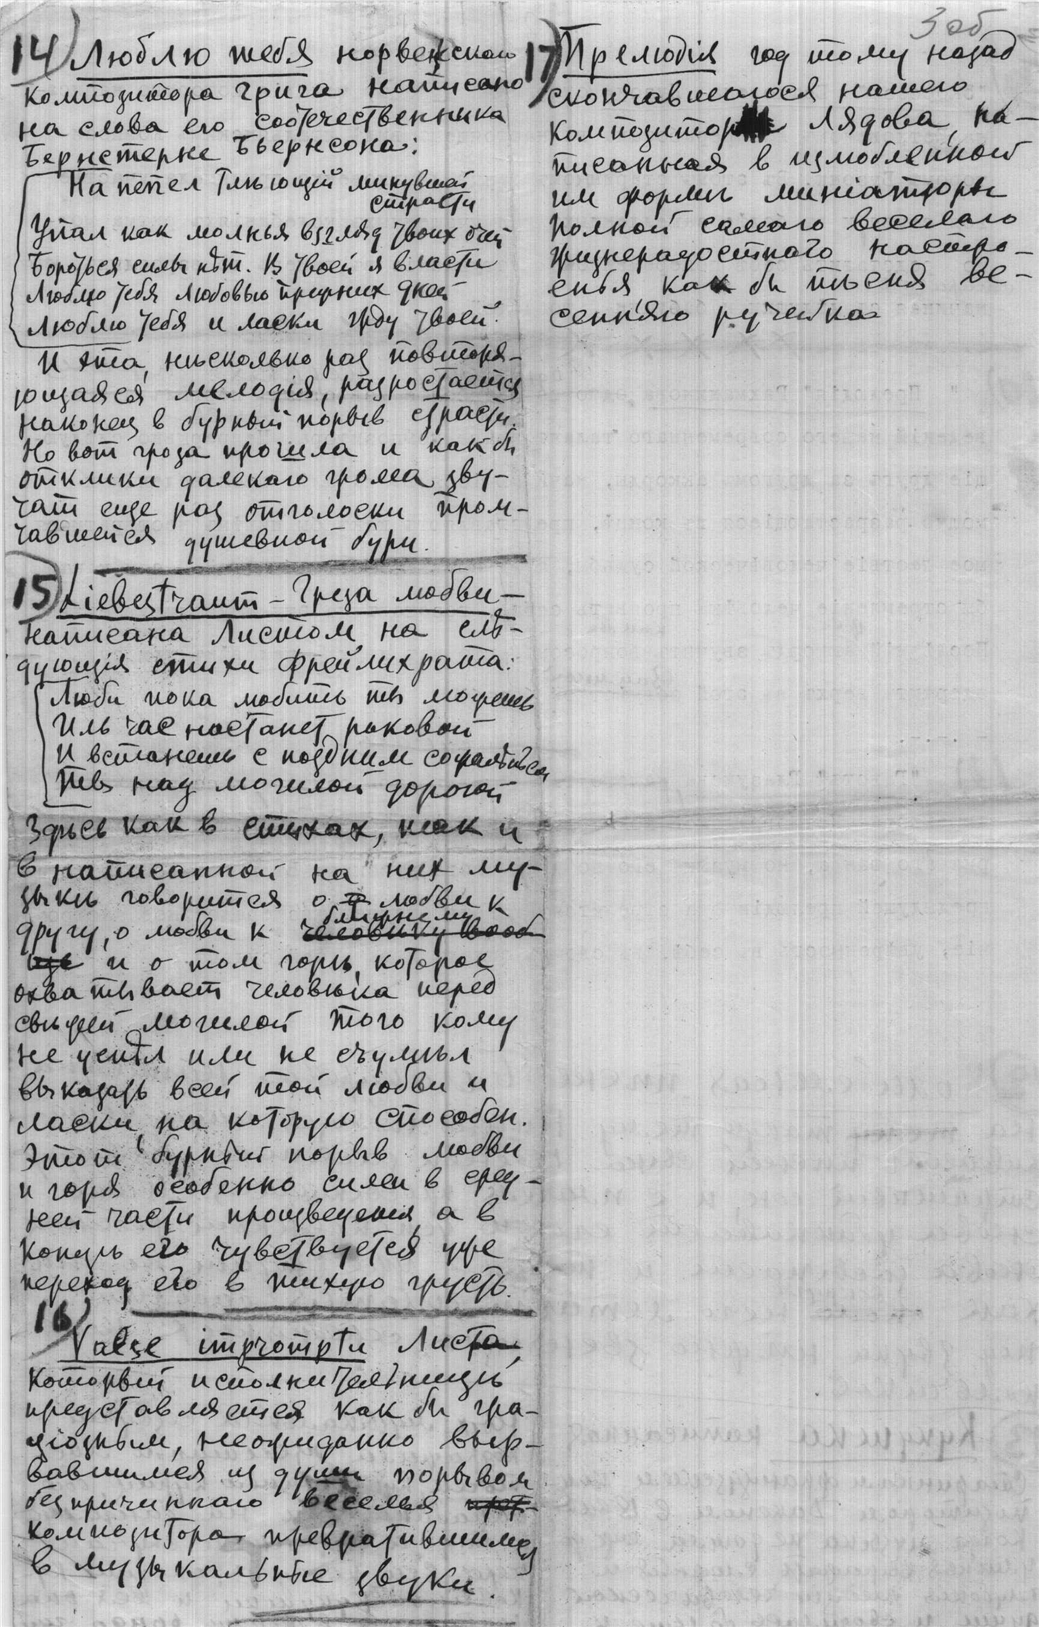 3 об
14) Люблю тебя норвежскаго
композитора Грига написано
на слова его соотечественника
Бернстерне Бьернсона:
На пепел тлеющій минувшей
страсти
Упал как молнья взгляд твоих очей
Бороться силы нѣт. В твоей я власти
Люблю тебя любовью прежних дней
Люблю тебя и ласки жду твоей.
И эта, нѣсколько раз повторя-
ющаяся мелодія, разростается
наконец в бурный порыв страсти.
Но вот гроза прошла и как бы
отклики далекаго грома зву-
чат еще раз отголоски пром-
чавшейся душевной бури.
15) Liebestraum - Греза любви -
написана Листом, на слѣ-
дующія стихи Фрейлихрата:
Люби пока любить ты можешь
Иль час настанет роковой
И встанешь с поздним сожалѣньем
Ты над могилой дорогой
Здѣсь как в стихах, так и
в написанной на них му-
зыкѣ говорится о любви к
другу, о любви к ближнему
человѣку вооб
ще и о том горѣ, которое
охватывает человѣка перед
свѣжей могилой того кому
не успѣл или не съумѣл
выказать всей той любви и
ласки, на которую способен.
Этот бурный порыв любви
и горя особенно силен в сред-
ней части произведения, а в
концѣ его чувствуется уже
переход его в тихую грусть.
16)
Valse impromptu Листа,
который исполнительницѣ
представляется как бы гра-
ціозным, неожиданно выр-
вавшимся из души порывом
безпричиннаго веселья
композитора превратившимся
в музыкальные звуки.
17) Прелюдія год тому назад
скончавшагося нашего
композитора Лядова, на-
писанная в излюбленной
им формѣ миніатюры
полной самаго веселаго
жизнерадостнаго настро-
енья как бы пѣсня ве-
сенняго ручейка